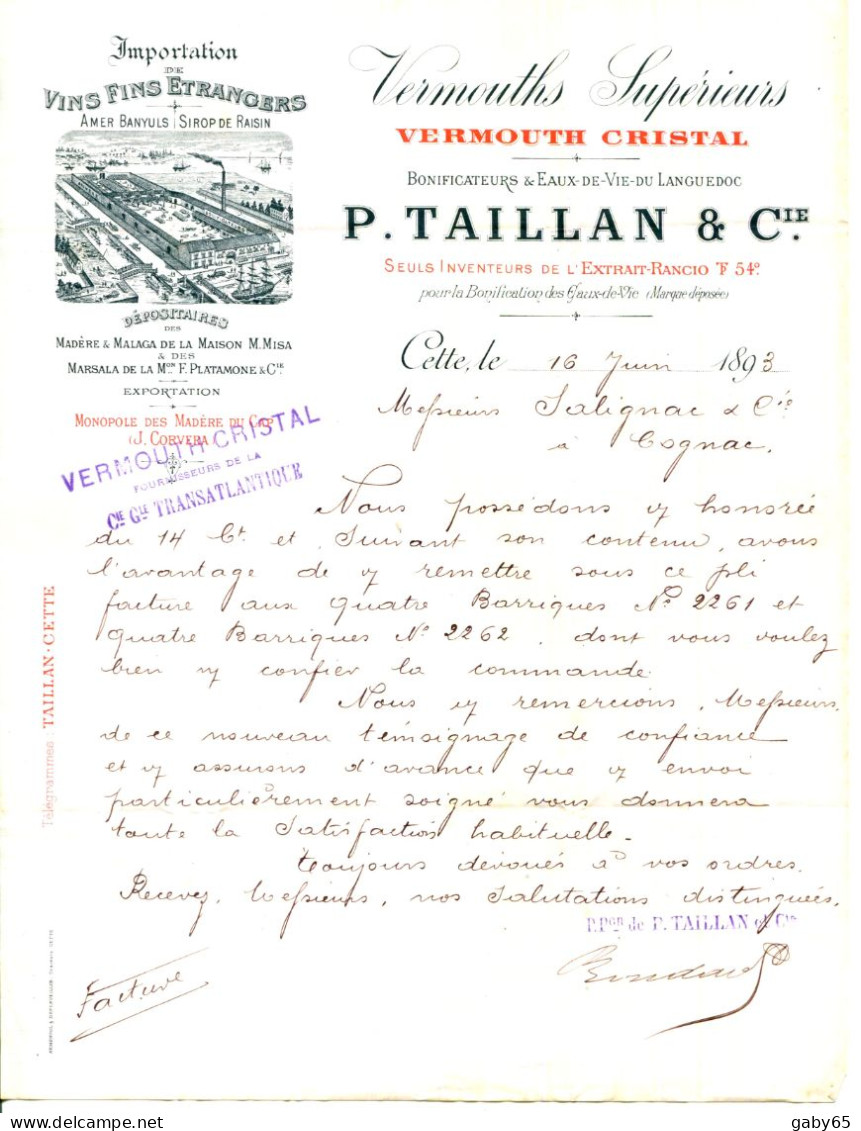 Importation
DE
VINS FINS ETRANGERS
AMER BANYULS | SIROP DE RAISIN
DÉPOSITAIRES
DES
MADÈRE & MALAGA DE LA MAISON M. MISA
& DES
MARSALA DE LA MON F. PLATAMONE & CIE
EXPORTATION
MONOPOLE DES MADÈRE DU CAP
(J. CORVERA)
VERMOUTH CRISTAL
FOURNISSEURS DE LA
CIE GLE TRANSATLANTIQUE
Vermouths Supérieurs
VERMOUTH CRISTAL
BONIFICATEURS & EAUX-DE-VIE-DU LANGUEDOC
P. TAILLAN & CIE.
SEULS INVENTEURS DE L'EXTRAIT-RANCIO TF 54°
pour la Bonification des Eaux-de-Vie (Marque déposée)
Cette, le 16 Juin 1893
Messieurs Salignac & Cie
à Cognac.
Nous possédons v/ honorée
du 14 Ct. et, suivant son contenu, avons
l'avantage de v/ remettre sous ce pli
facture aux quatre Barriques No 2261 et
quatre Barriques No 2262, dont vous voulez
bien v/ confier la commande.
Nous v/ remercions, Messieurs,
de ce nouveau témoignage de confiance
et v/ assurons d'avance que v/ envoi
particulièrement soigné vous donnera
toute la satisfaction habituelle.
Toujours dévoués à vos ordres.
Recevez, Messieurs, nos salutations distinguées.
P.Pon de P. TAILLAN et Cie
Facture
Télégrammes : TAILLAN-CETTE
gaby65